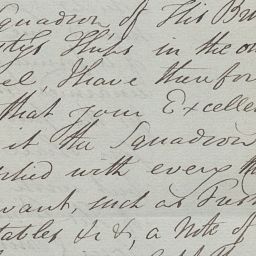 Squadron of His Br
tys Ships in the
el, I have therefor
that your Excelle
it the Squadron
plied with every th
want, such as Fresh
tables &c &c, a Note of